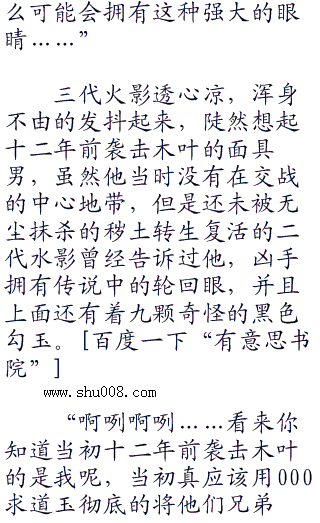 么可能会拥有这种强大的眼
睛……”
三代火影透心凉，浑身
不由的发抖起来，陡然想起
十二年前袭击木叶的面具
男，虽然他当时没有在交战
的中心地带，但是还未被无
尘抹杀的秽土转生复活的二
代水影曾经告诉过他，凶手
拥有传说中的轮回眼，并且
上面还有着九颗奇怪的黑色
勾玉。[百度一下“有意思书
院”]
www.shu008.com
“啊咧啊咧……看来你
知道当初十二年前袭击木叶
的是我呢，当初真应该用000
求道玉彻底的将他们兄弟